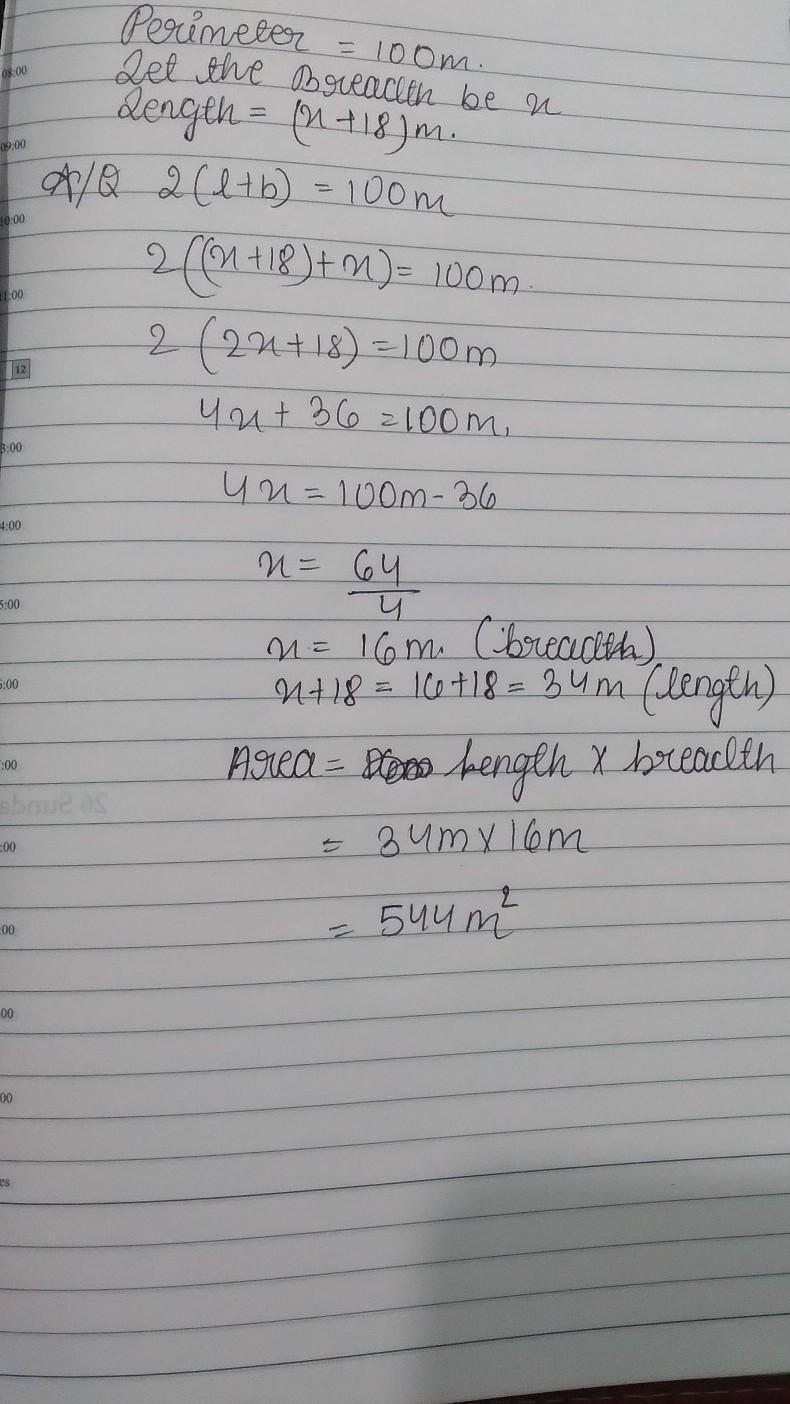 Perimeter = 100m.
08:00
Let the Breadth be x
Length = (x+18)m.
09:00
A/Q 2(l+b) = 100m
10:00
2((x+18)+x) = 100m.
11:00
2 (2x+18) = 100m
12
4x + 36 = 100m.
3:00
4x = 100m - 36
4:00
x = 64
4
5:00
x = 16m. (breadth)
6:00
x+18 = 16+18 = 34m (length)
:00
Area = Length x breadth
26 Sunda
:00
= 34m x 16m
:00
= 544 m²
00
00
es